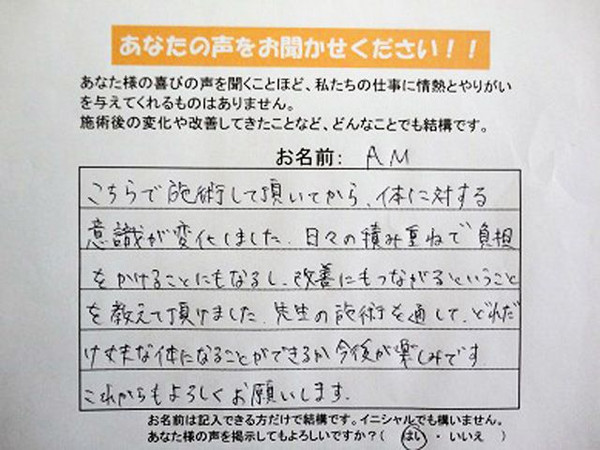 あなたの声をお聞かせください！！
あなた様の喜びの声を聞くことほど、私たちの仕事に情熱とやりがい
を与えてくれるものはありません。
施術後の変化や改善してきたことなど、どんなことでも結構です。
お名前： AM
こちらで施術して頂いてから、体に対する
意識が変化しました。日々の積み重ねで負担
をかけることにもなるし、改善にもつながるということ
を教えて頂けました。先生の施術を通して、どれだ
け丈夫な体になることができるか今後が楽しみです
これからもよろしくお願いします。
お名前は記入できる方だけで結構です。イニシャルでも構いません。
あなた様の声を掲示してもよろしいですか？（ はい ・ いいえ ）